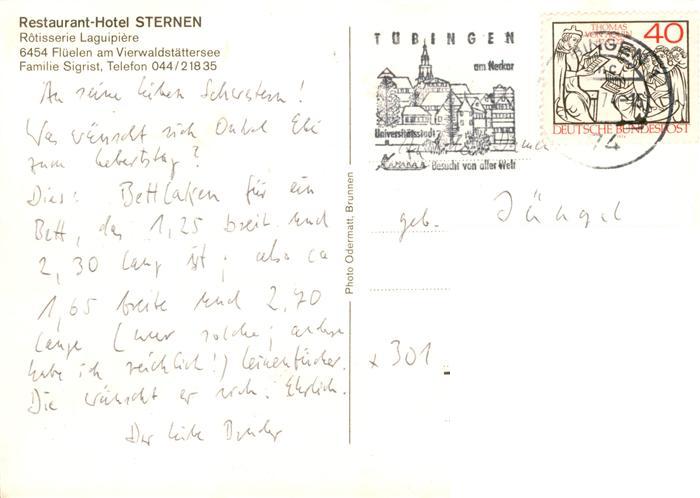 Restaurant-Hotel STERNEN
Rôtisserie Laguipière
6454 Flüelen am Vierwaldstättersee
Familie Sigrist, Telefon 044/2 18 35
An seine lieben Schwestern!
Was wünscht sich Onkel Ebi
zum Geburtstag?
Dies: Bettlaken für ein
Bett, das 1,25 breit und
2,30 lang ist; also ca
1,65 breite und 2,70
lange (nur solche; andere
habe ich reichlich!) Leinentücher.
Die wünscht er sich. Ehrlich.
Der liebe Bruder
Photo Odermatt, Brunnen
TÜBINGEN
am Neckar
Universitätsstadt
Besucht von aller Welt
THOMAS
VON AQUIN
40
DEUTSCHE BUNDESPOST
TÜBINGEN
74
geb. Jüngel
x 301